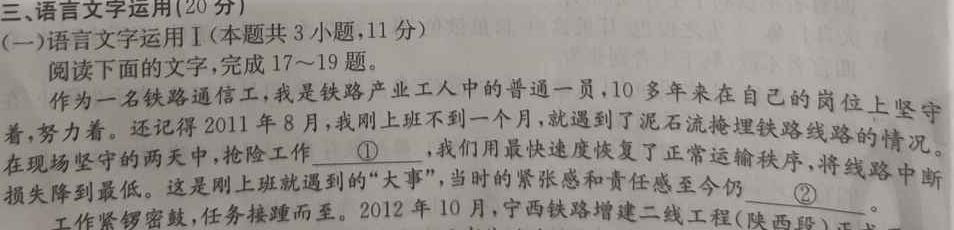 三、语言文字运用(20分)
(一)语言文字运用Ⅰ(本题共3小题,11分)
阅读下面的文字,完成17～19题。
作为一名铁路通信工,我是铁路产业工人中的普通一员,10多年来在自己的岗位上坚守
着,努力着。还记得2011年8月,我刚上班不到一个月,就遇到了泥石流掩埋铁路线路的情况。
在现场坚守的两天中,抢险工作 ① ,我们用最快速度恢复了正常运输秩序,将线路中断
损失降到最低。这是刚上班就遇到的“大事”,当时的紧张感和责任感至今仍 ② 。
工作紧锣密鼓,任务接踵而至。2012年10月,宁西铁路增建二线工程(陕西段)正式